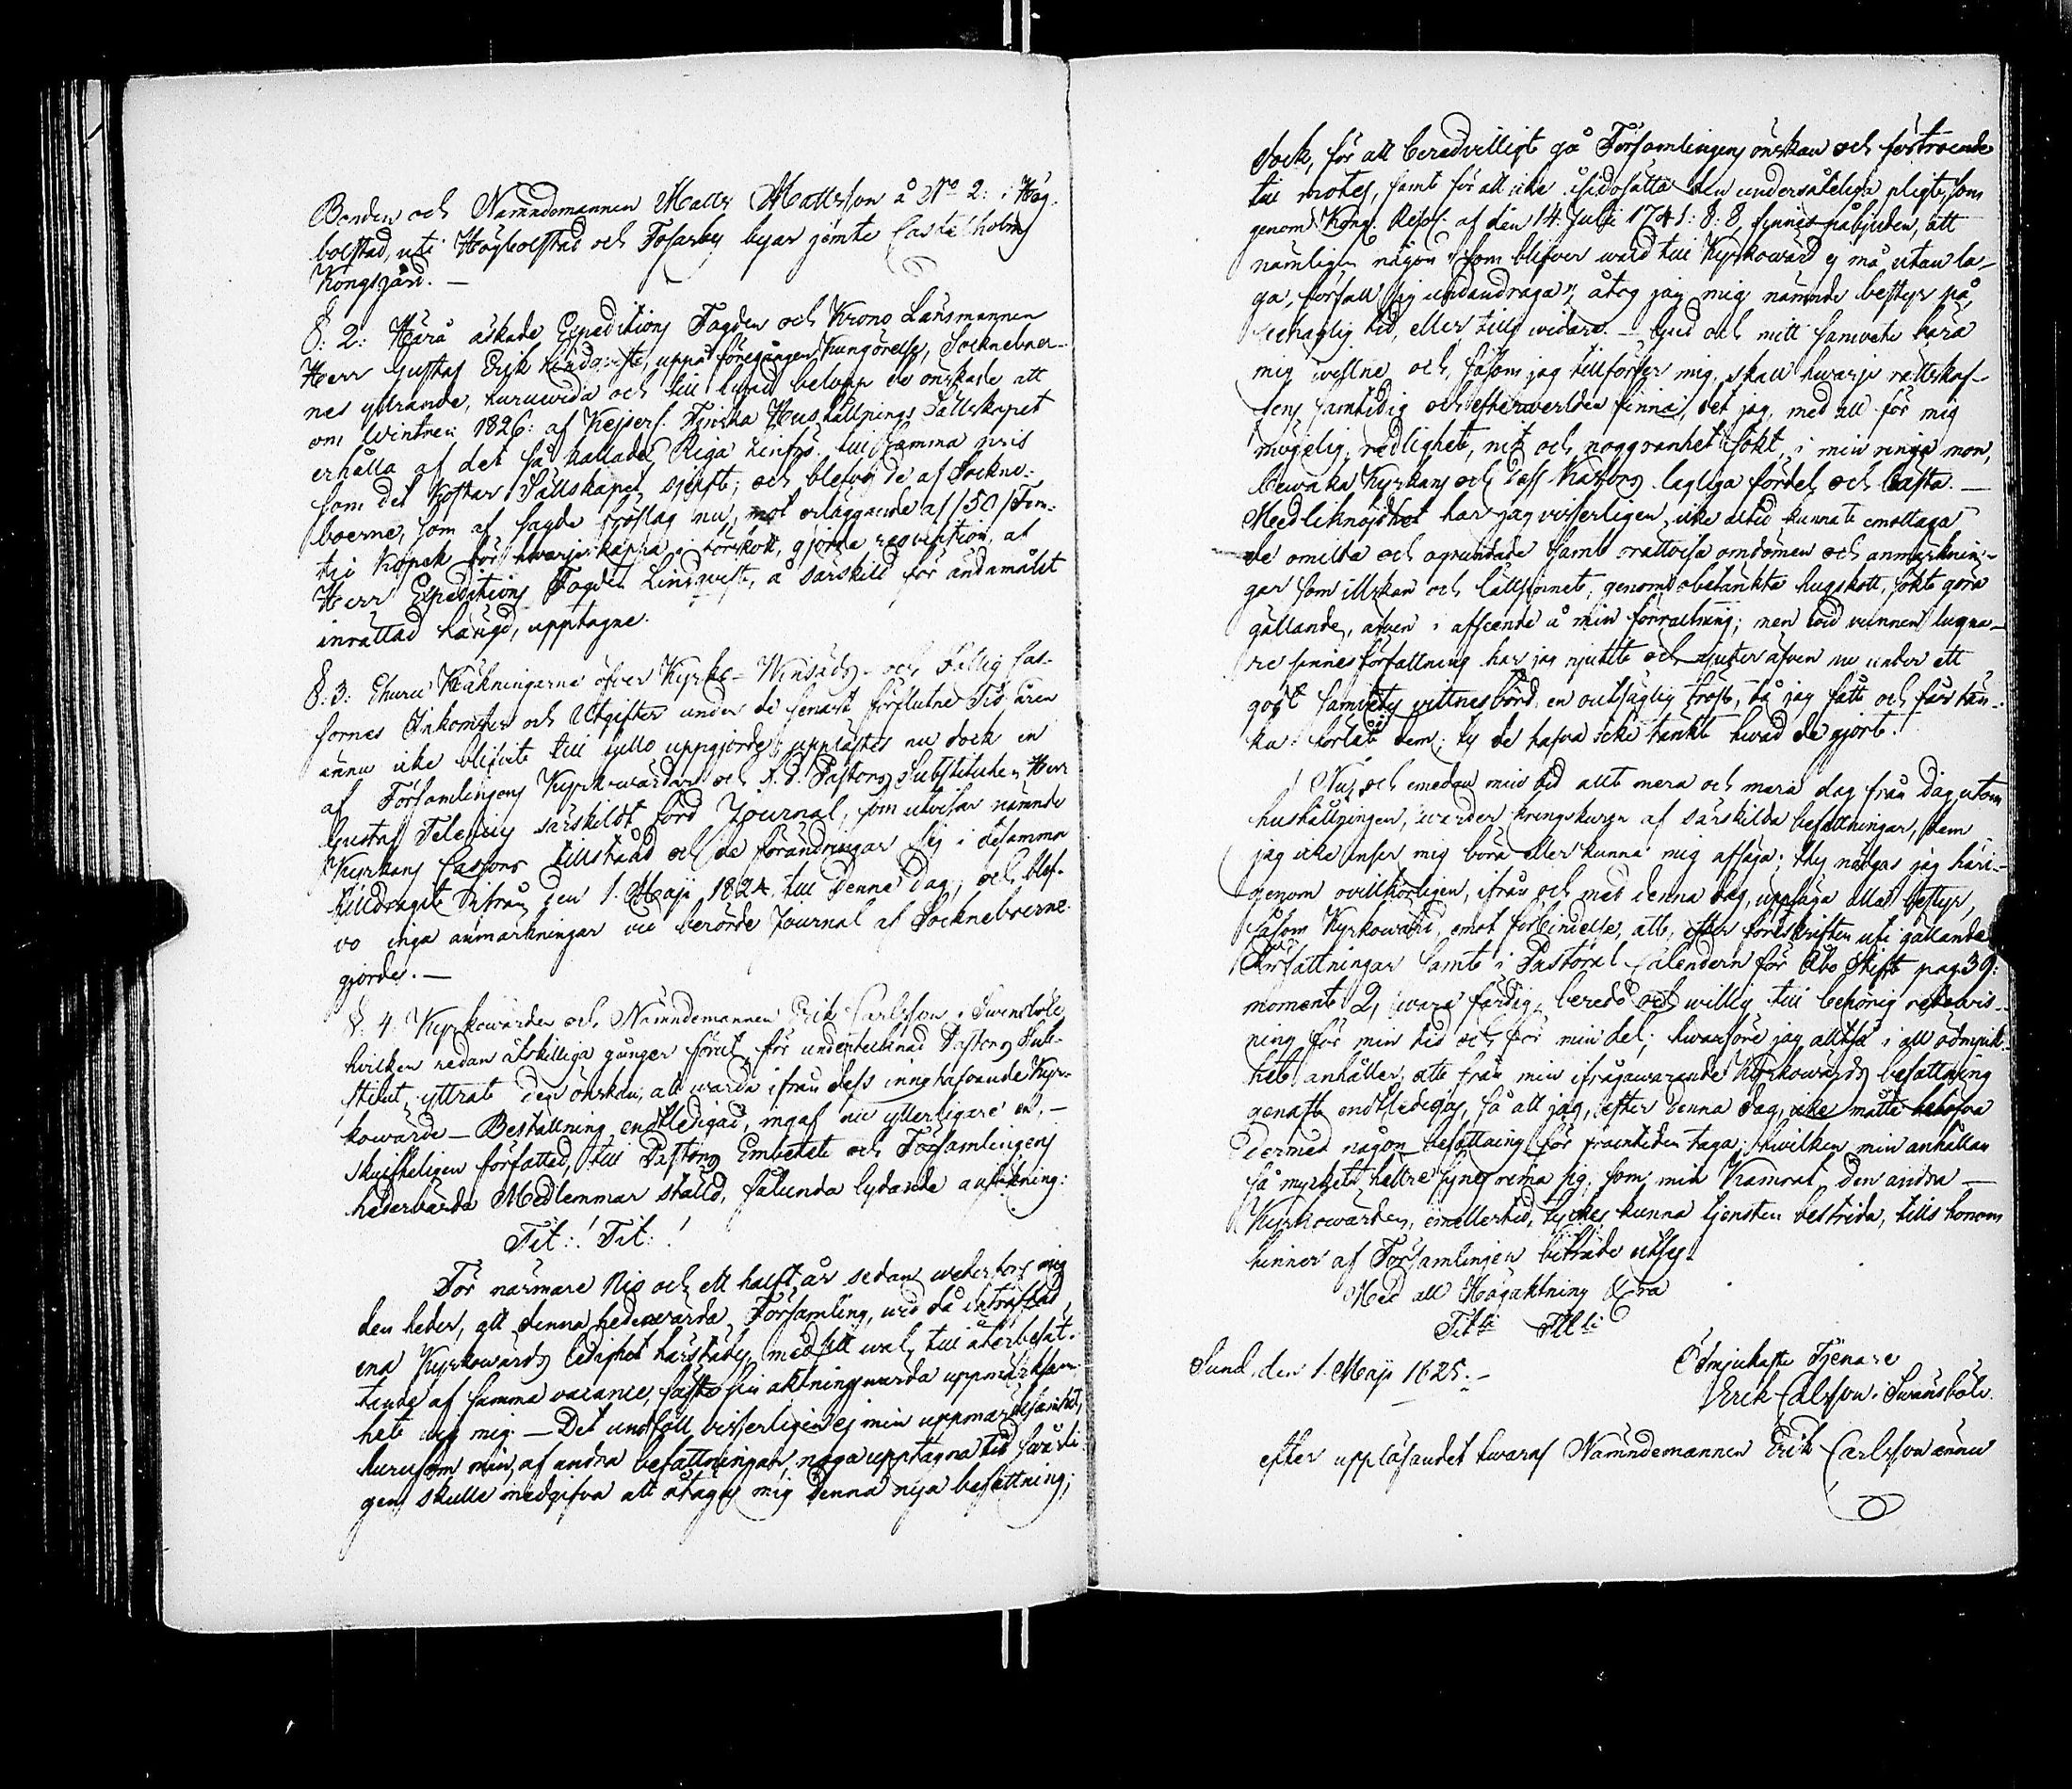 Bonden och Nämndemannen Matts Mattsson å No 2: i Hög-
bolstad, uti Högbolstad och Tosarby byar jemte Castelholms
Kongsgård. —
§: 2: Härå äskade Expeditions Fogden och Krono Länsmannen
Herr Gustaf Erik Lindqvist, uppå föregången kungörelse, Sockneboer-
nes yttrande, huruwida och till hvad belopp de önskade att
om Wintren 1826: af Kejserl. Finska Hushållnings Sällskapet
erhålla af det så kallade Riga Linfrö till samma pris
som det kostar Sällskapet sjelft; och blefvo de af Sockne-
boerne, som af sagde förslag nu, mot erläggande af /50/ Fem-
tio Kopek för hvarje kappa i förskott, gjorde reqvisition, af
Herr Expeditions Fogden Lindqvist, å särskild för ändamålet
inrättad längd, upptagne.
§: 3: Ehuru Räkningarne öfver Kyrko- Winsäds- och Fattig Cas-
sornes Inkomster och Utgifter under de senast förflutne Tid åren
ännu icke blifvit till fullo uppgjorde, upplästes nu dock en
af Församlingens Kyrkowärdar och V. P. Pastors Substituten Herr
Gustaf Telenius särskildt förd Journal, som utvisar nämnde
Kyrkans Cassors tillstånd och de förändringar sig i desamma
tilldragit ifrån den 1. Maji 1824 till denna dag; och blef-
vo inga anmärkningar vid berörde Journal af Sockneboerne
gjorde. —
§: 4: Kyrkowärden och Nämndemannen Erik Carlsson i Swensböle,
hvilken redan åtskilliga gånger förut, för undertecknad Pastors Sub-
stitut, yttrat den önskan, att warda ifrån dess innehafvande Kyr-
kowärds-Beställning entledigad, ingaf nu ytterligare en, —
skrifteligen författad, till Pastors Embetet och Församlingens
hedervärda Medlemmar ställd, sålunda lydande ansökning:
Tit:! Tit:!
För närmare Nio och ett halft år sedan wederfors mig
den heder, att denna hedervärda Församling, wid då inträffad
ena Kyrkowärds ledighet härstädes, med sitt wal, till återbesät-
tande af samma vacance, fäste sin aktningswärda uppmärksam-
het wid mig. — Det undföll visserligen ej min uppmärksamhet,
hurusom min, af andra befattningar, noga upptagna tid swårli-
gen skulle medgifva att åtaga mig denna nya befattning;
dock, för att beredvilligt gå Församlingens önskan och förtroende
till mötes, samt för att icke åsidosätta den undersåteliga pligt, som
genom Kongl. Resol. af den 14. Julii 1741: §: 8, finnes påbjuden, att
nämligen någon "som blifver wald till Kyrkowärd ej må utan la-
ga förfall sig undandraga", åtog jag mig nämnde bestyr på
behaglig tid, eller tills widare. — Gud och mitt samvete bära
mig wittne och, såsom jag tillförser mig, skall hwarje rättskaf-
fens samtidig och efterverlden finna, det jag, med all för mig
mögelig redlighet, nit och noggranhet sökt, i min ringa mon,
bewaka Kyrkans och dess Kassors lagliga fördel och bästa. —
Med liknöjdhet har jag visserligen icke altid kunnat emottaga
de omilda och ogrundade samt orättvisa omdömen och anmärknin-
gar som illskan och lättsinnet, genom obetänkta hugskott, sökt göra
gällande, äfven i afseende å min förvaltning; men wid vunnen lugna-
re sinnesförfattning har jag njutit och njuter äfven nu under ett
godt samvetes vittnesbörd en outsäglig tröst, då jag fått och får tän-
ka: förlåt dem; ty de hafva icke tänkt hvad de gjort.!
Nu, och emedan min tid allt mera och mera dag från dag, utom
hushållningen, warder kringskuren af särskilda befattningar, dem
jag icke anser mig böra eller kunna mig afsäga; thy nödgas jag häri-
genom ovillkorligen, ifrån och med denna dag, uppsäga allt bestyr,
såsom Kyrkowärd, emot förbindelse, att, efter föreskriften uti gällande
Författningar samt i Pastoral Calendern för Åbo Stift pag. 39:
momentet 2, wara färdig, beredd och willig till behörig redovis-
ning för min tid och för min del; hwarföre jag alltså i all ödmjuk-
het anhåller, att från min ifrågawarande Kyrkowärds befattning
genast entledigas, så att jag, efter denna dag, icke måtte behöfva
dermed någon befattning för framtiden taga; hvilken min anhållan
så mycket hellre synes rima sig, som min Kamrat, den andra —
Kyrkowärden, emellertid, tyckes kunna tjensten bestrida, tills honom
hinner af Församlingen biträde utses.
Med all Högaktning &ra
Titlti Titlti
Sund den 1. Maji 1825. —
Ödmjukaste Tjenare
Erik Carlsson i Swensböle.
efter uppläsandet hwaraf Nämndemannen Erik Carlsson ännu